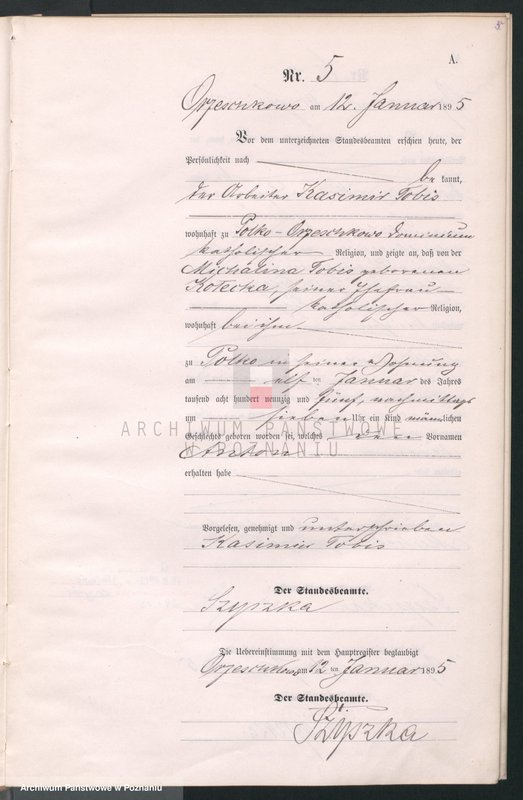 5
A.
Nr. 5
Orzeschkowo am 12. Januar 1895
Vor dem unterzeichneten Standesbeamten erschien heute, der
Persönlichkeit nach
be kannt,
der Arbeiter Kasimir Tobis
wohnhaft zu Polko-Orzeschkowo Dominium
katholischer Religion, und zeigte an, daß von der
Michalina Tobis geborenen
Kotecka, seiner Ehefrau
katholischer Religion,
wohnhaft bei ihm
zu Polko in seiner Wohnung
am elf ten Januar des Jahres
tausend acht hundert neunzig und fünf nachmittags
um sieben Uhr ein Kind männlichen
Geschlechts geboren worden sei, welches den Vornamen
Anton
erhalten habe
Vorgelesen, genehmigt und unterschrieben
Kasimir Tobis
Der Standesbeamte.
Szyszka
Die Uebereinstimmung mit dem Hauptregister beglaubigt
Orzeschkowo am 12 ten Januar 1895
Der Standesbeamte.
Szyszka
ARCHIWUM PAŃSTWOWE
W POZNANIU
Archiwum Państwowe w Poznaniu